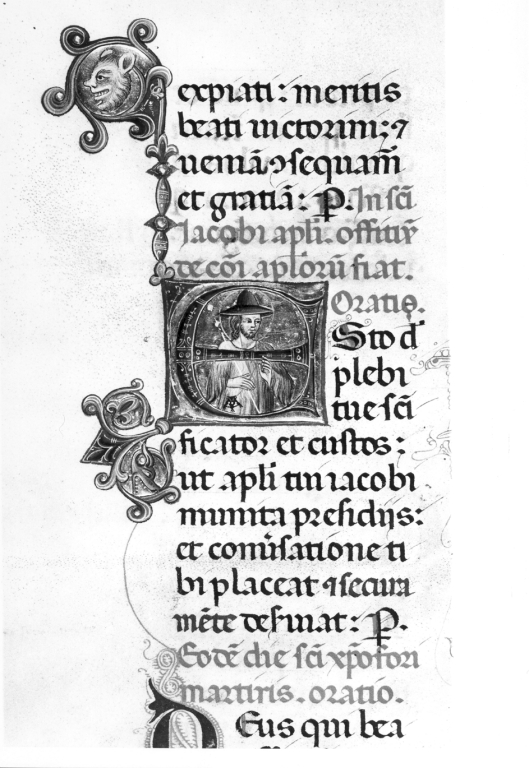 expiati: meritis
beati uictorini: ⁊
ueniā ꝯsequam̄
et gratiā: P. In sc̄i
Jacobi apl̄i. offitiū
de cōi apl̄orū fiat.
Oratio.
ESto d'
plebi
tue sc̄i
ficator et custos:
ut apl̄i tui iacobi
munita presidijs:
et conuīsatione ti
bi placeat ⁊ secura
mēte deſuiat: P.
Eodē die sc̄i xp̄ofori
martiris. oratio.
DEus qui bea